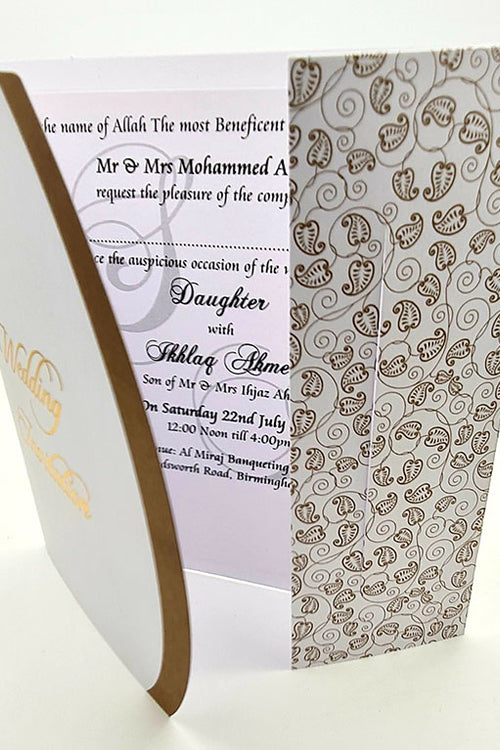 Wedding
Invitation
he name of Allah The most Beneficent
Mr & Mrs Mohammed A
request the pleasure of the comp
ce the auspicious occasion of the w
Daughter
with
Ikhlaq Ahme
Son of Mr & Mrs Ihjaz Ah
On Saturday 22nd July
12:00 Noon till 4:00pm
nue: Al Miraj Banqueting
dsworth Road, Birmingha